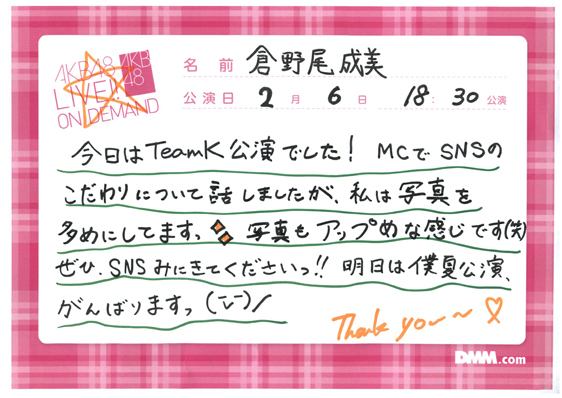 AKB48
LIVE!!
ON DEMAND
AKB
48
名前 倉野尾成美
公演日 2月6日 18:30公演
今日はTeamK公演でした! MCでSNSの
こだわりについて話しましたが、私は写真を
多めにしてますっ 写真もアップめな感じです(笑)
ぜひ、SNSみにきてくださいっ!! 明日は僕夏公演、
がんばりますっ
Thank you~~
DMM.com